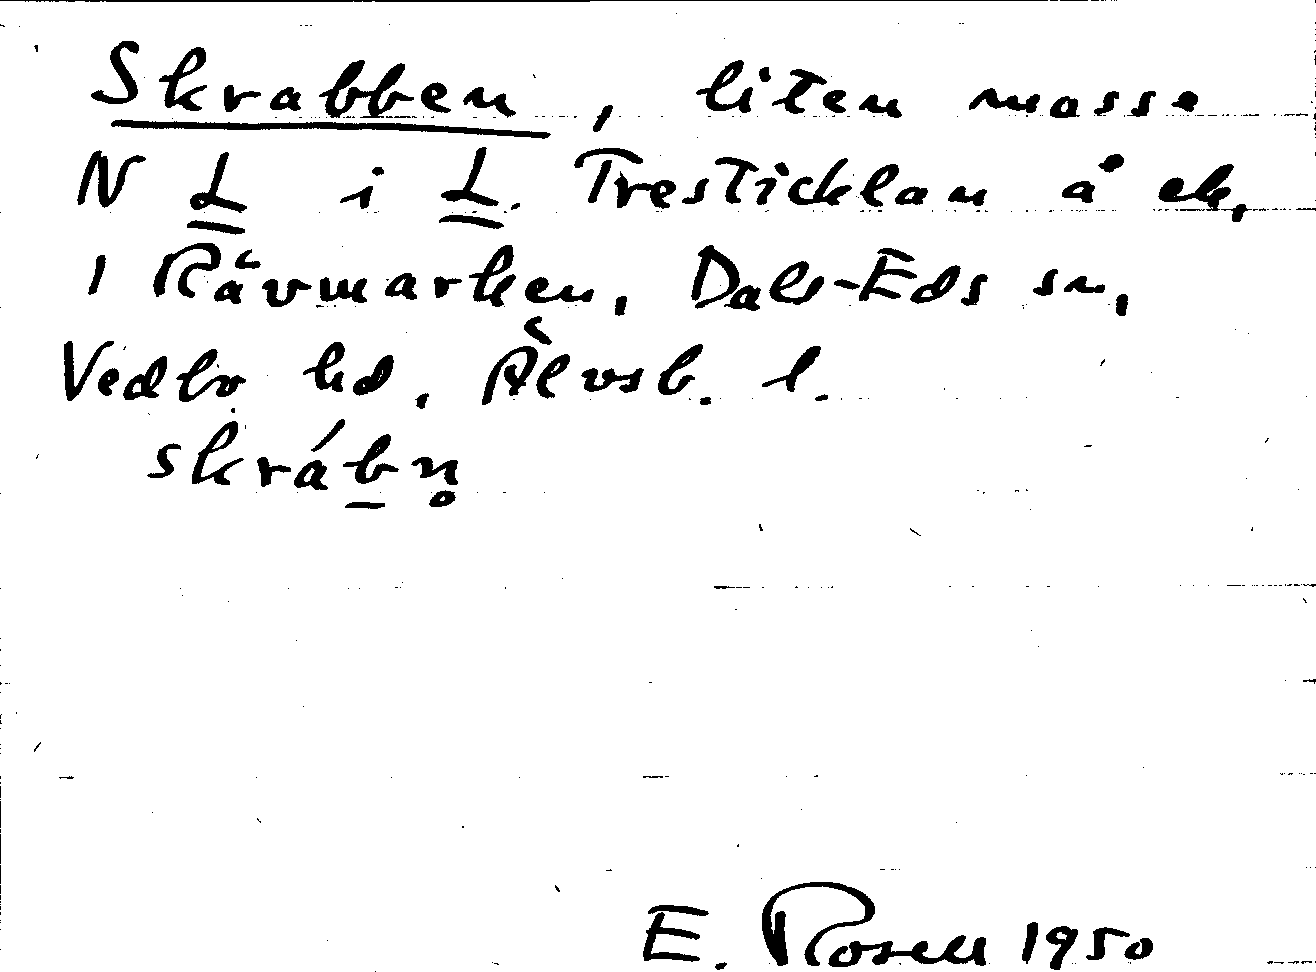 Skrabben, liten mosse
N L i L. Tresticklan å ek,
1 Rävmarken, Dals-Eds sn,
Vedbo hd, Älvsb. l.
skrábn̥
E. Rosell 1950